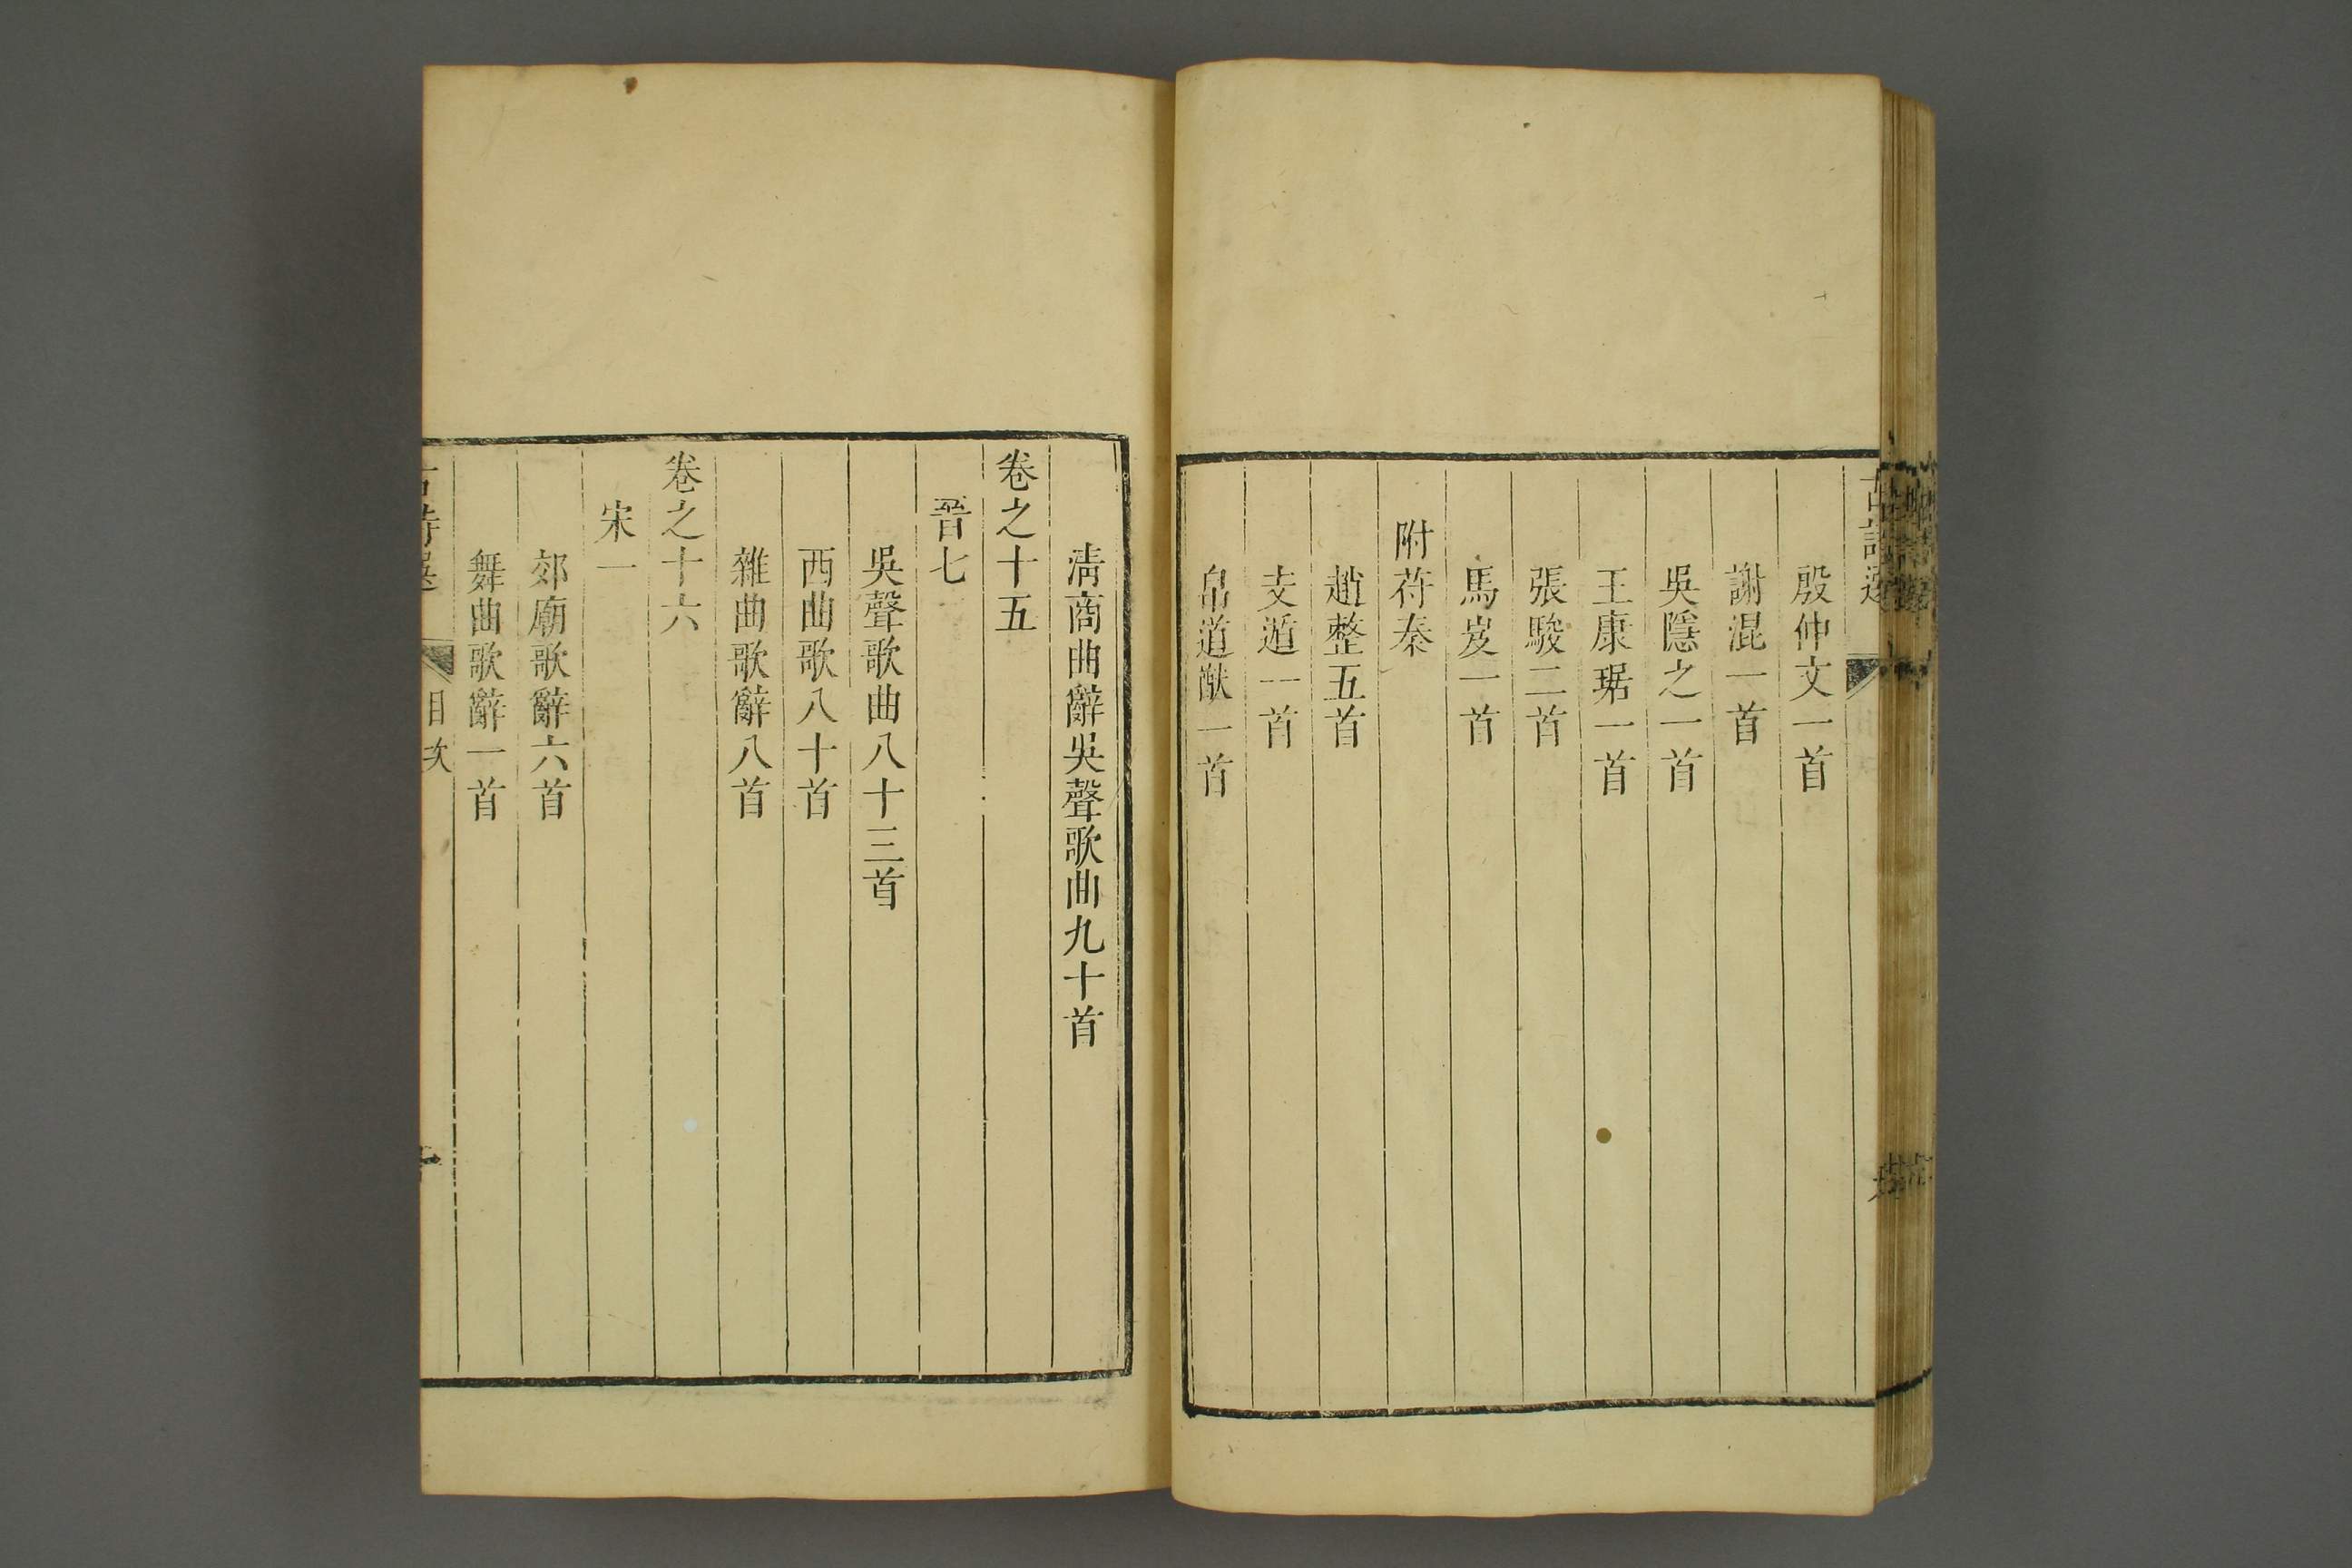 殷仲文一首
謝混一首
吳隱之一首
王康琚一首
張駿二首
馬岌一首
附苻秦
趙整五首
支遁一首
帛道猷一首
清商曲辭吳聲歌曲九十首
卷之十五
晉七
吳聲歌曲八十三首
西曲歌八十首
雜曲歌辭八首
卷之十六
宋一
郊廟歌辭六首
舞曲歌辭一首
目次